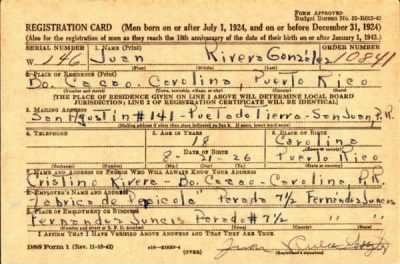 FORM APPROVED
Budget Bureau No. 33-R012-42
REGISTRATION CARD (Men born on or after July 1, 1924, and on or before December 31, 1924)
(Also for the registration of men as they reach the 18th anniversary of the date of their birth on or after January 1, 1943.)
SERIAL NUMBER 1. NAME (Print) ORDER NUMBER
W 146 Juan Rivera González 10841
(First) (Middle) (Last)
2. PLACE OF RESIDENCE (Print)
Bo. Cacao, Carolina, Puerto Rico
(Number and street) (Town, township, village, or city) (County) (State)
[THE PLACE OF RESIDENCE GIVEN ON LINE 2 ABOVE WILL DETERMINE LOCAL BOARD
JURISDICTION; LINE 2 OF REGISTRATION CERTIFICATE WILL BE IDENTICAL]
3. MAILING ADDRESS
San Agustin #141-Puetadetierra-San Juan, P.R.
4. TELEPHONE 5. AGE IN YEARS 6. PLACE OF BIRTH
18 Carolina
DATE OF BIRTH
8-21-26 Puerto Rico
(Exchange) (Number) (Mo.) (Day) (Yr.) (State or country)
7. NAME AND ADDRESS OF PERSON WHO WILL ALWAYS KNOW YOUR ADDRESS
Cristino Rivera-Bo. Cacao-Carolina P.R.
8. EMPLOYER'S NAME AND ADDRESS
Fabrica de "Pepicola" Parada 7½ Fernandez Juncos
9. PLACE OF EMPLOYMENT OR BUSINESS
Fernandez Juncos Parada #7½
(Number and street or R. F. D. number) (Town) (County) (State)
I AFFIRM THAT I HAVE VERIFIED ABOVE ANSWERS AND THAT THEY ARE TRUE.
DSS Form 1 (Rev. 11-16-42) (OVER)
Juan Rivera